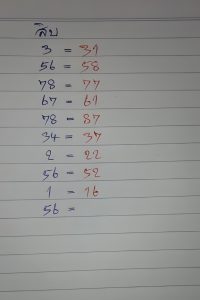 สิบ
3 = 31
56 = 58
78 = 77
67 = 61
78 = 87
34 = 37
2 = 22
56 = 52
1 = 16
56 =